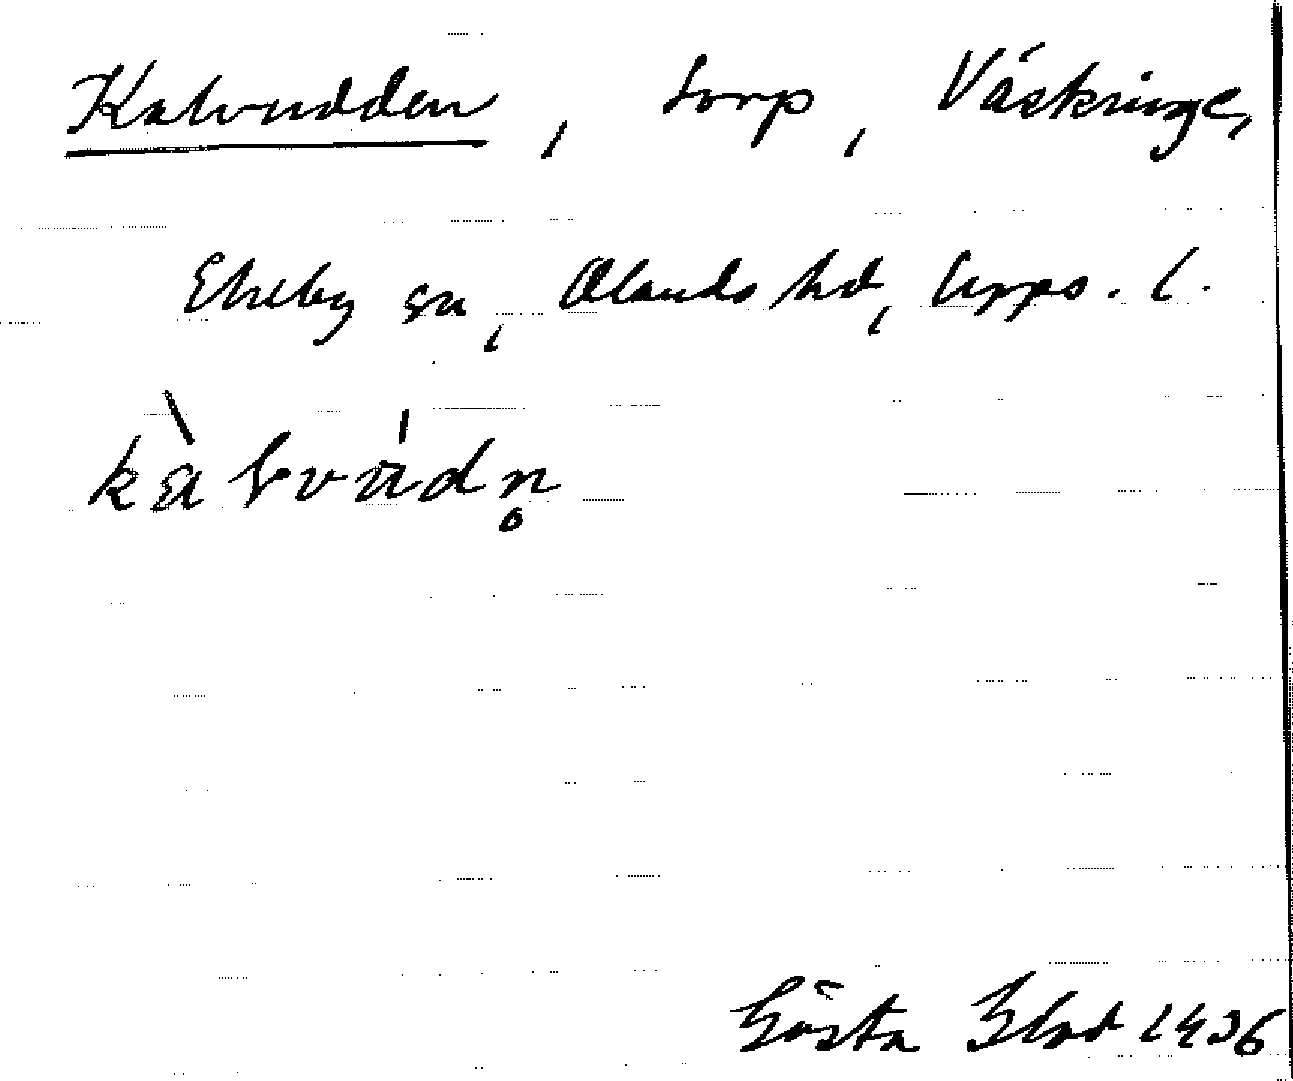 Kalvudden, torp, Väskinge,
Ekeby sn, Olands hd, Upps. l.
kàlvúdn̥
Gösta Blad 1936